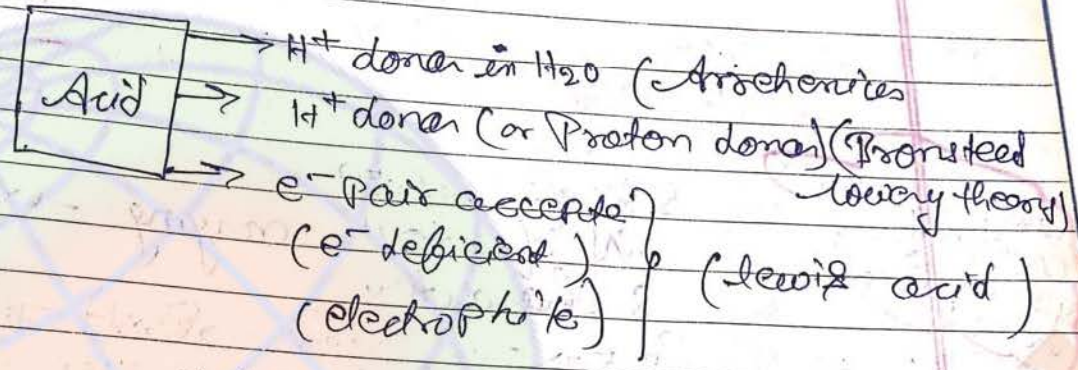 Acid → H⁺ donor in H₂O (Arrehenius
→ H⁺ donor (or Proton donor) (Bronsteed
lowery theory)
→ e⁻ Pair accepte
(e⁻ deficient)
(electrophile)
(lewis acid)